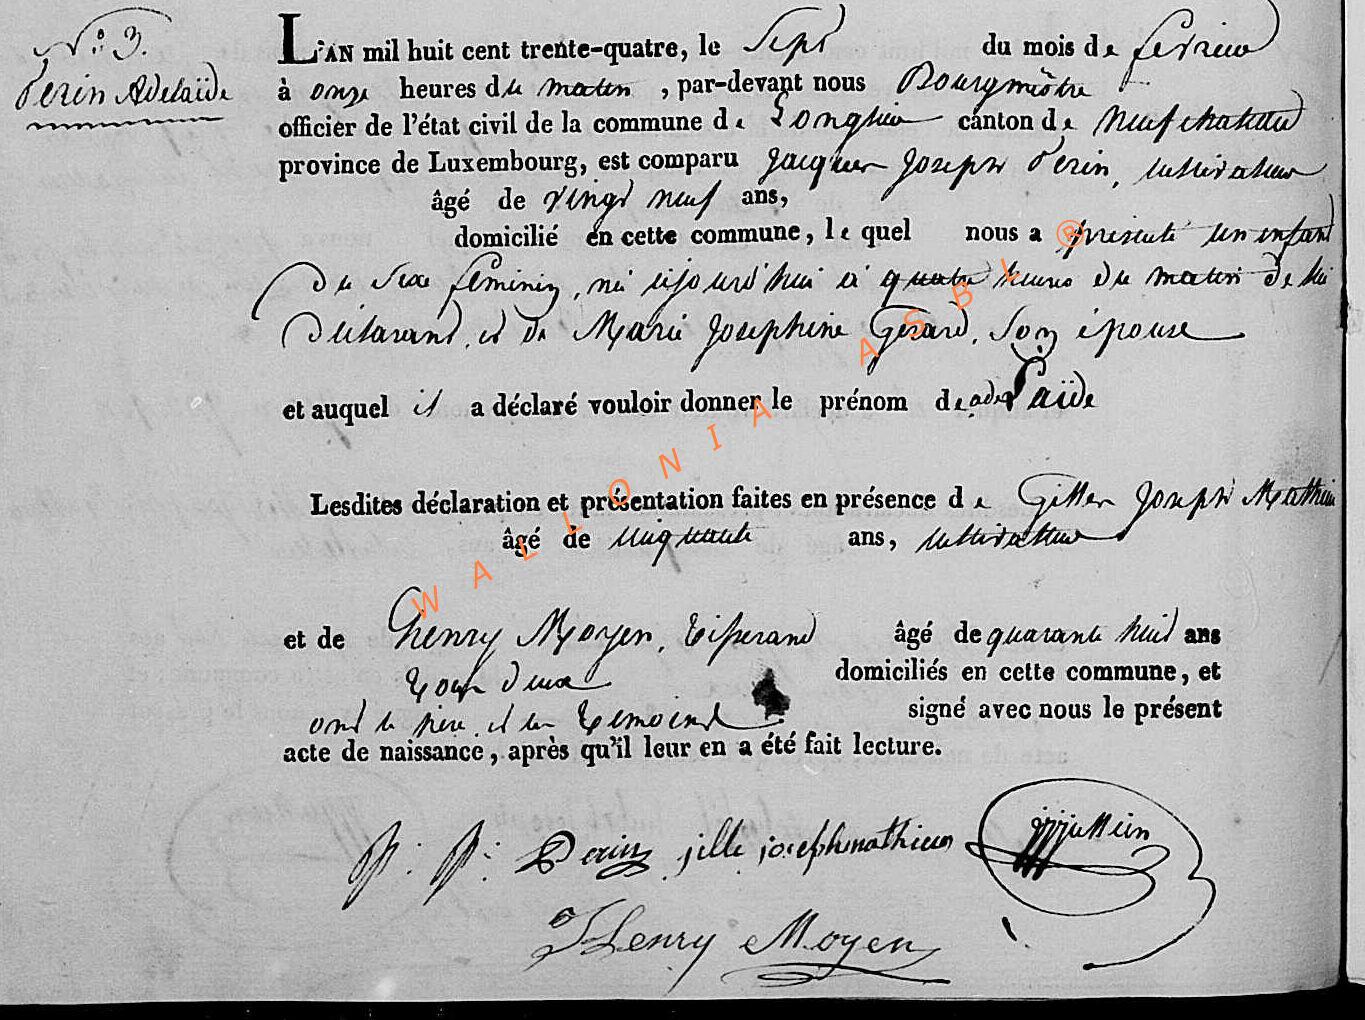 N.° 3.
Perin Adelaïde
L'AN mil huit cent trente-quatre, le Sept du mois de fevrier
à onze heures du matin, par-devant nous Bourgmêtre
officier de l'état civil de la commune de Longlier canton de Neufchateau
province de Luxembourg, est comparu Jacques Joseph Perin, cultivateur
âgé de vingt neuf ans,
domicilié en cette commune, le quel nous a présenté un enfant
du Sexe féminin, né cejourd'hui à quatre heures du matin de lui
Déclarant, et de Marie Josephine Gerard, Son épouse
et auquel il a déclaré vouloir donner le prénom de adelaïde
Lesdites déclaration et présentation faites en présence de Gilles Joseph Mathieu
âgé de cinquante ans, cultivateur
et de henry Moyen, Tisserand âgé de quarante huit ans
Tous deux domiciliés en cette commune, et
ont le père et les Temoins signé avec nous le présent
acte de naissance, après qu'il leur en a été fait lecture.
Perin gille joseph mathieu
Henry Moyen
WALLONIA ASBL ®